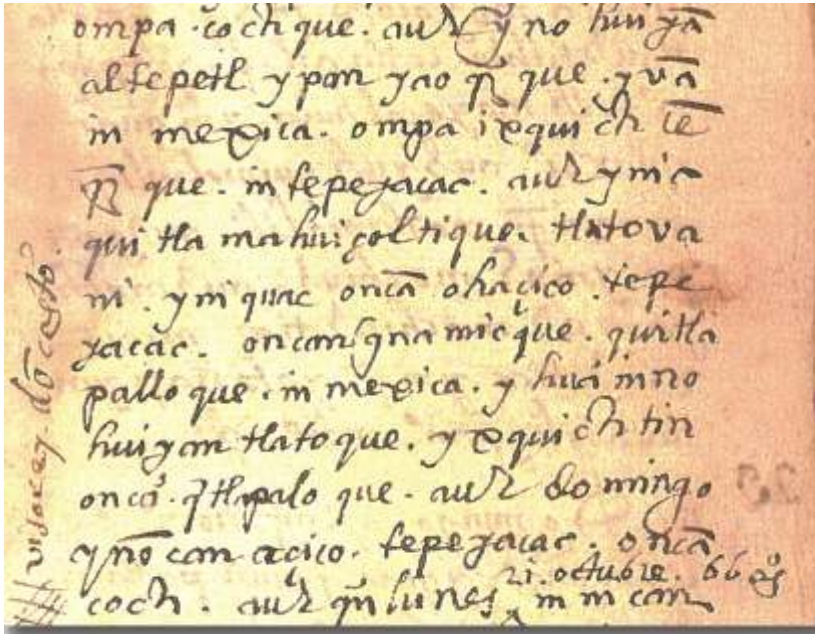 ompa. cochque. auh yno huiyā
altepetl ypan yao q̄ que. y vā
in mexica. ompa ixquich tē
q̄ que. in tepeyacac. auh ynic
qui tla mahuiçoltique. tlatova
ni. ym quac oncā ohaçico. tepe
yacac. oncan qna micque. quitla
pallo que. in mexica. y huā in no
huiyan tlatoque. yxquich tin
oncā. q̄tlapalo que. auh domingo
ynōcan acico. tepeyacac. oncā
21. octubre. 66 as
coch. auh qn lunes, in can
visorey. dō